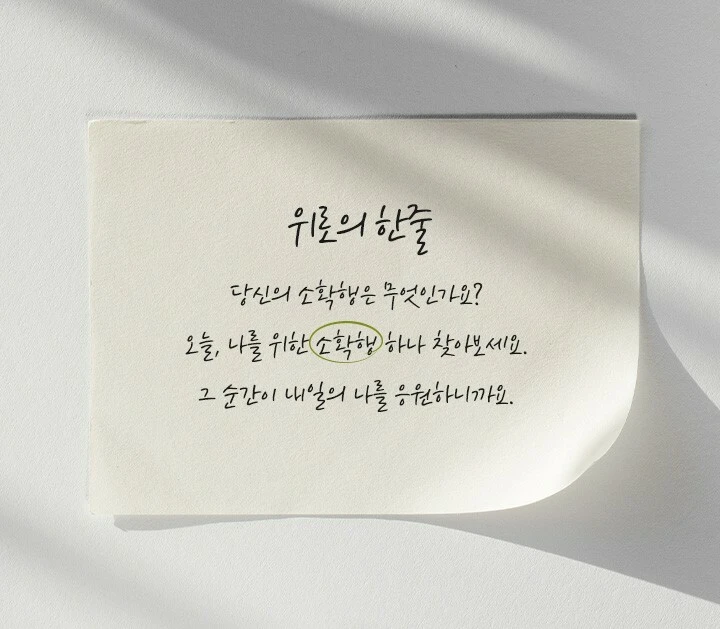 위로의 한줄
당신의 소확행은 무엇인가요?
오늘, 나를 위한 소확행 하나 찾아보세요.
그 순간이 내일의 나를 응원하니까요.